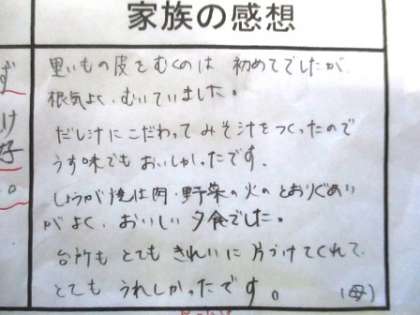 家族の感想
里いもの皮をむくのは 初めてでしたが
根気よく、むいていました。
だし汁にこだわってみそ汁をつくったので
うす味でもおいしかったです.
しょうが焼は肉・野菜の火のとおりぐあい
がよく、おいしい夕食でした。
台所もとてもきれいに片づけてくれて
とてもうれしかったです。 (母)
ず
け
好
。